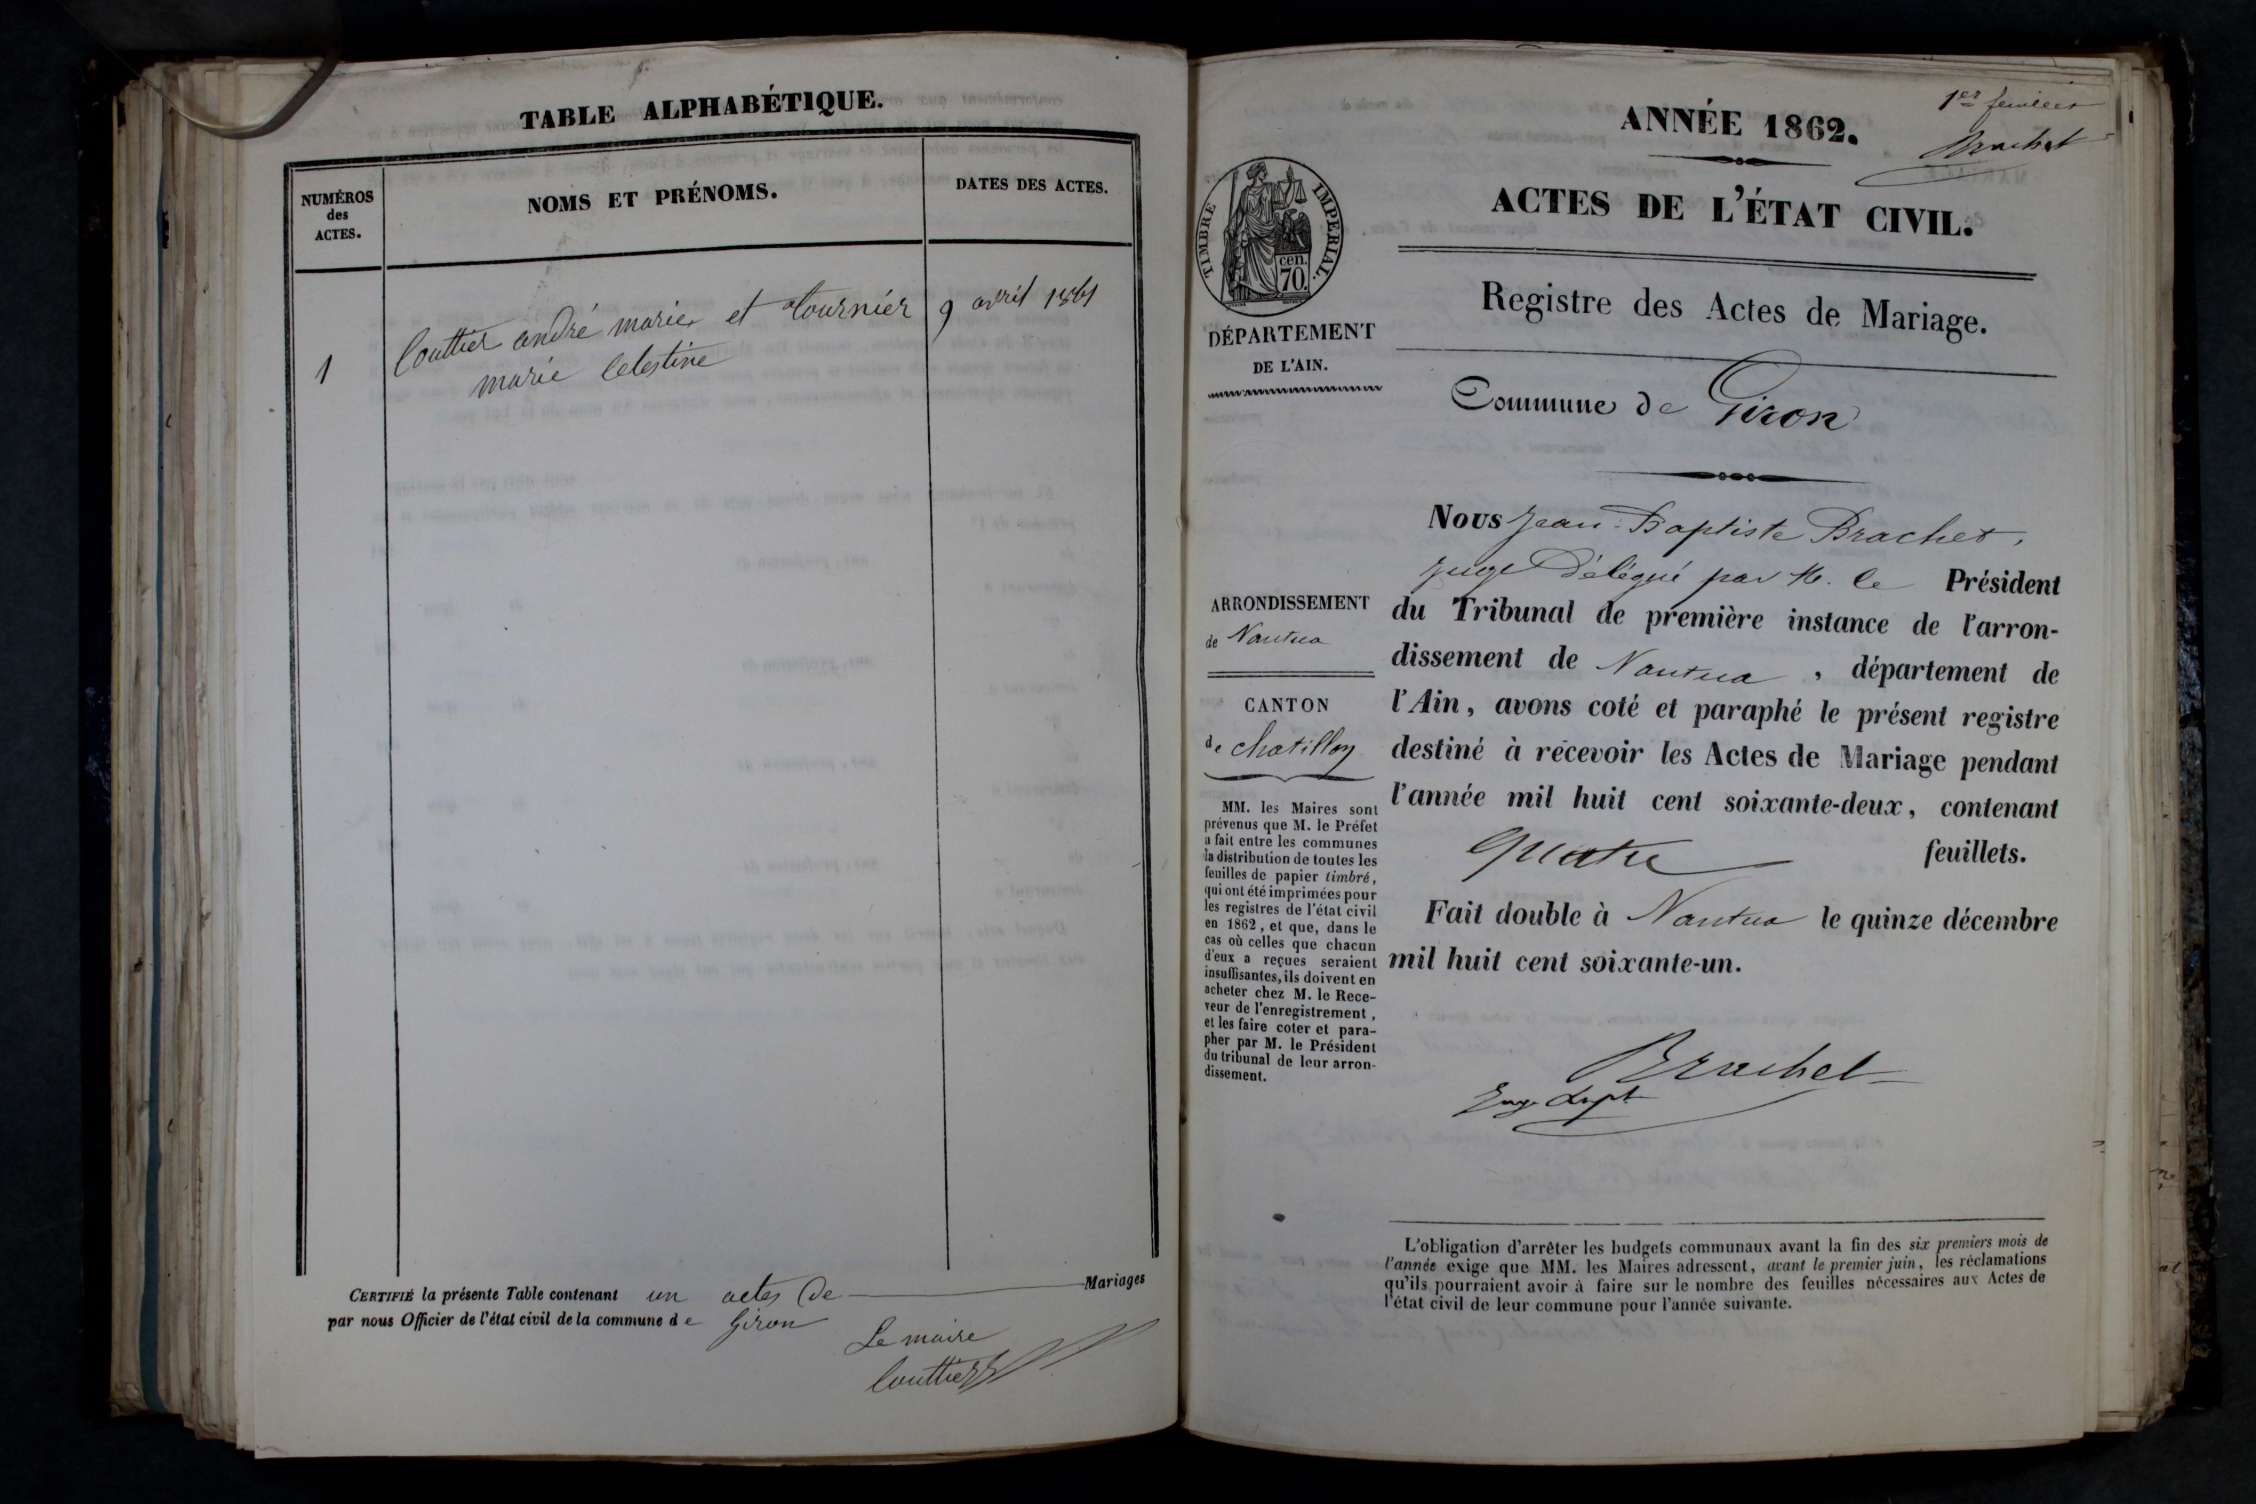 TABLE ALPHABÉTIQUE.
NUMÉROS
des
ACTES.
NOMS ET PRÉNOMS.
DATES DES ACTES.
1
Couttier andré marie et tournier
marie Celestine
9 avril 1861
CERTIFIÉ la présente Table contenant un actes de Mariages
par nous Officier de l'état civil de la commune de Giron
Le maire
Couttier
1er feuillet
Brachet
ANNÉE 1862.
ACTES DE L'ÉTAT CIVIL.
Registre des Actes de Mariage.
TIMBRE IMPERIAL.
cen.
70.
DÉPARTEMENT
DE L'AIN.
Commune de Giron
Nous Jean-Baptiste Brachet,
Juge Délégué par M. le Président
du Tribunal de première instance de l'arron-
dissement de Nantua, département de
l'Ain, avons coté et paraphé le présent registre
destiné à recevoir les Actes de Mariage pendant
l'année mil huit cent soixante-deux, contenant
quatre feuillets.
Fait double à Nantua le quinze décembre
mil huit cent soixante-un.
Brachet
ARRONDISSEMENT
de Nantua
CANTON
de chatillon
MM. les Maires sont
prévenus que M. le Préfet
a fait entre les communes
la distribution de toutes les
feuilles de papier timbré,
qui ont été imprimées pour
les registres de l'état civil
en 1862, et que, dans le
cas où celles que chacun
d'eux a reçues seraient
insuffisantes, ils doivent en
acheter chez M. le Rece-
veur de l'enregistrement,
et les faire coter et para-
pher par M. le Président
du tribunal de leur arron-
dissement.
L'obligation d'arrêter les budgets communaux avant la fin des six premiers mois de
l'année exige que MM. les Maires adressent, avant le premier juin, les réclamations
qu'ils pourraient avoir à faire sur le nombre des feuilles nécessaires aux Actes de
l'état civil de leur commune pour l'année suivante.